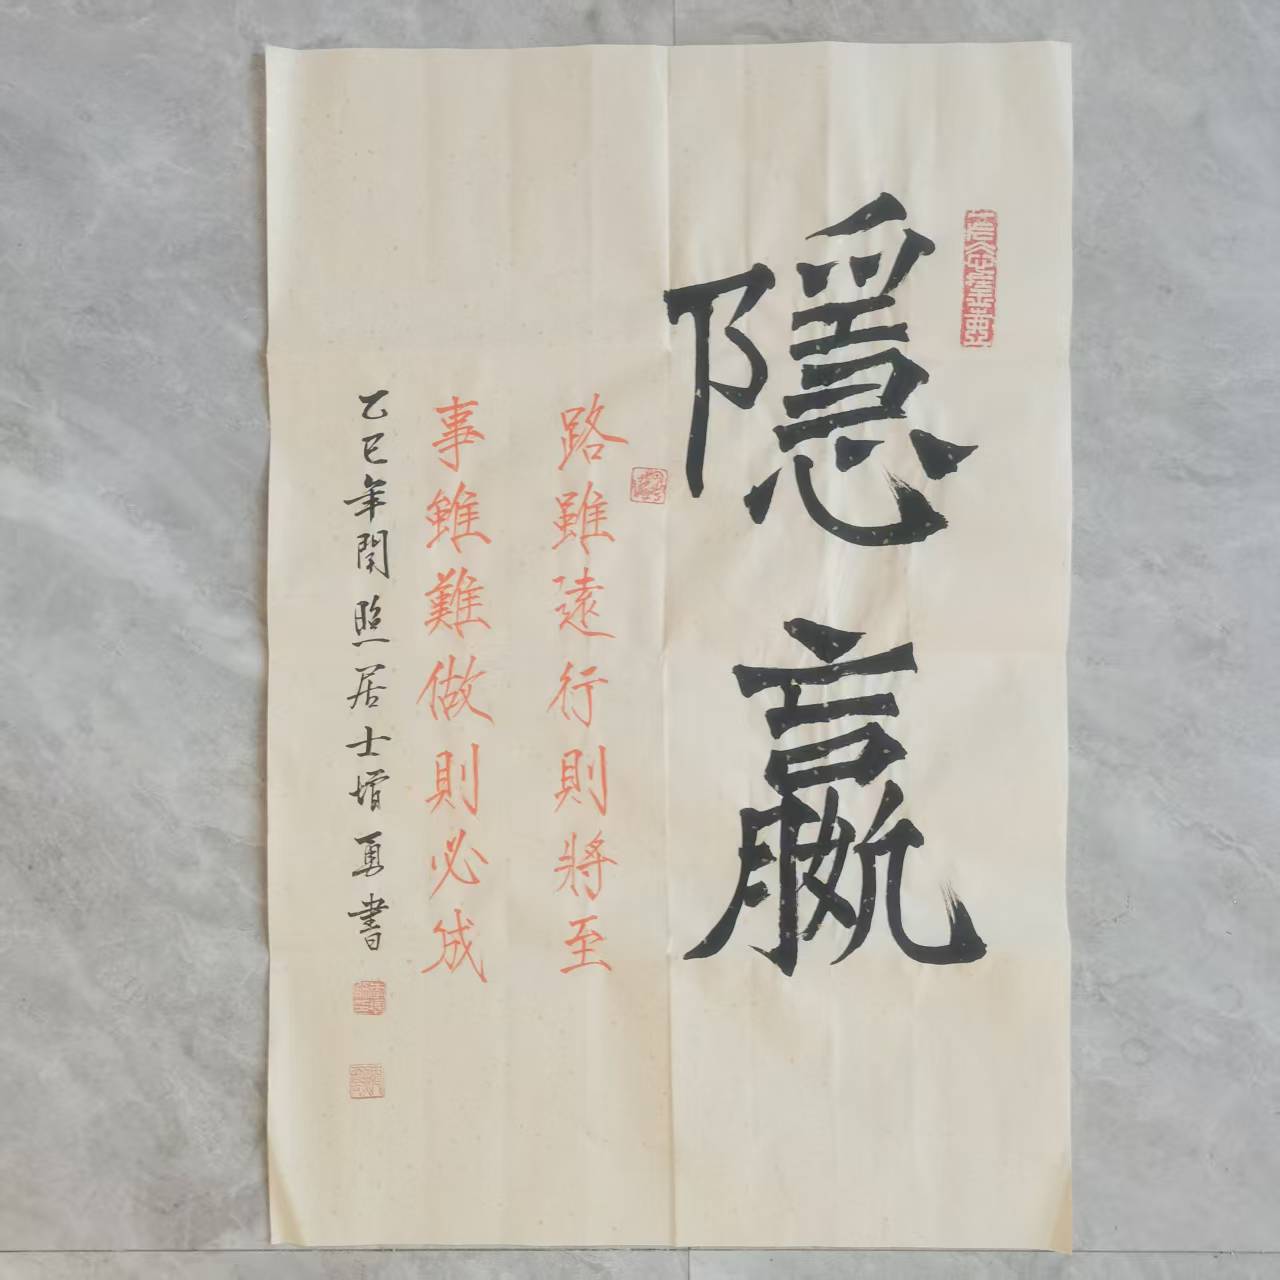 隱嬴
路雖遠行則將至
事雖難做則必成
乙巳年閏照居士增勇書